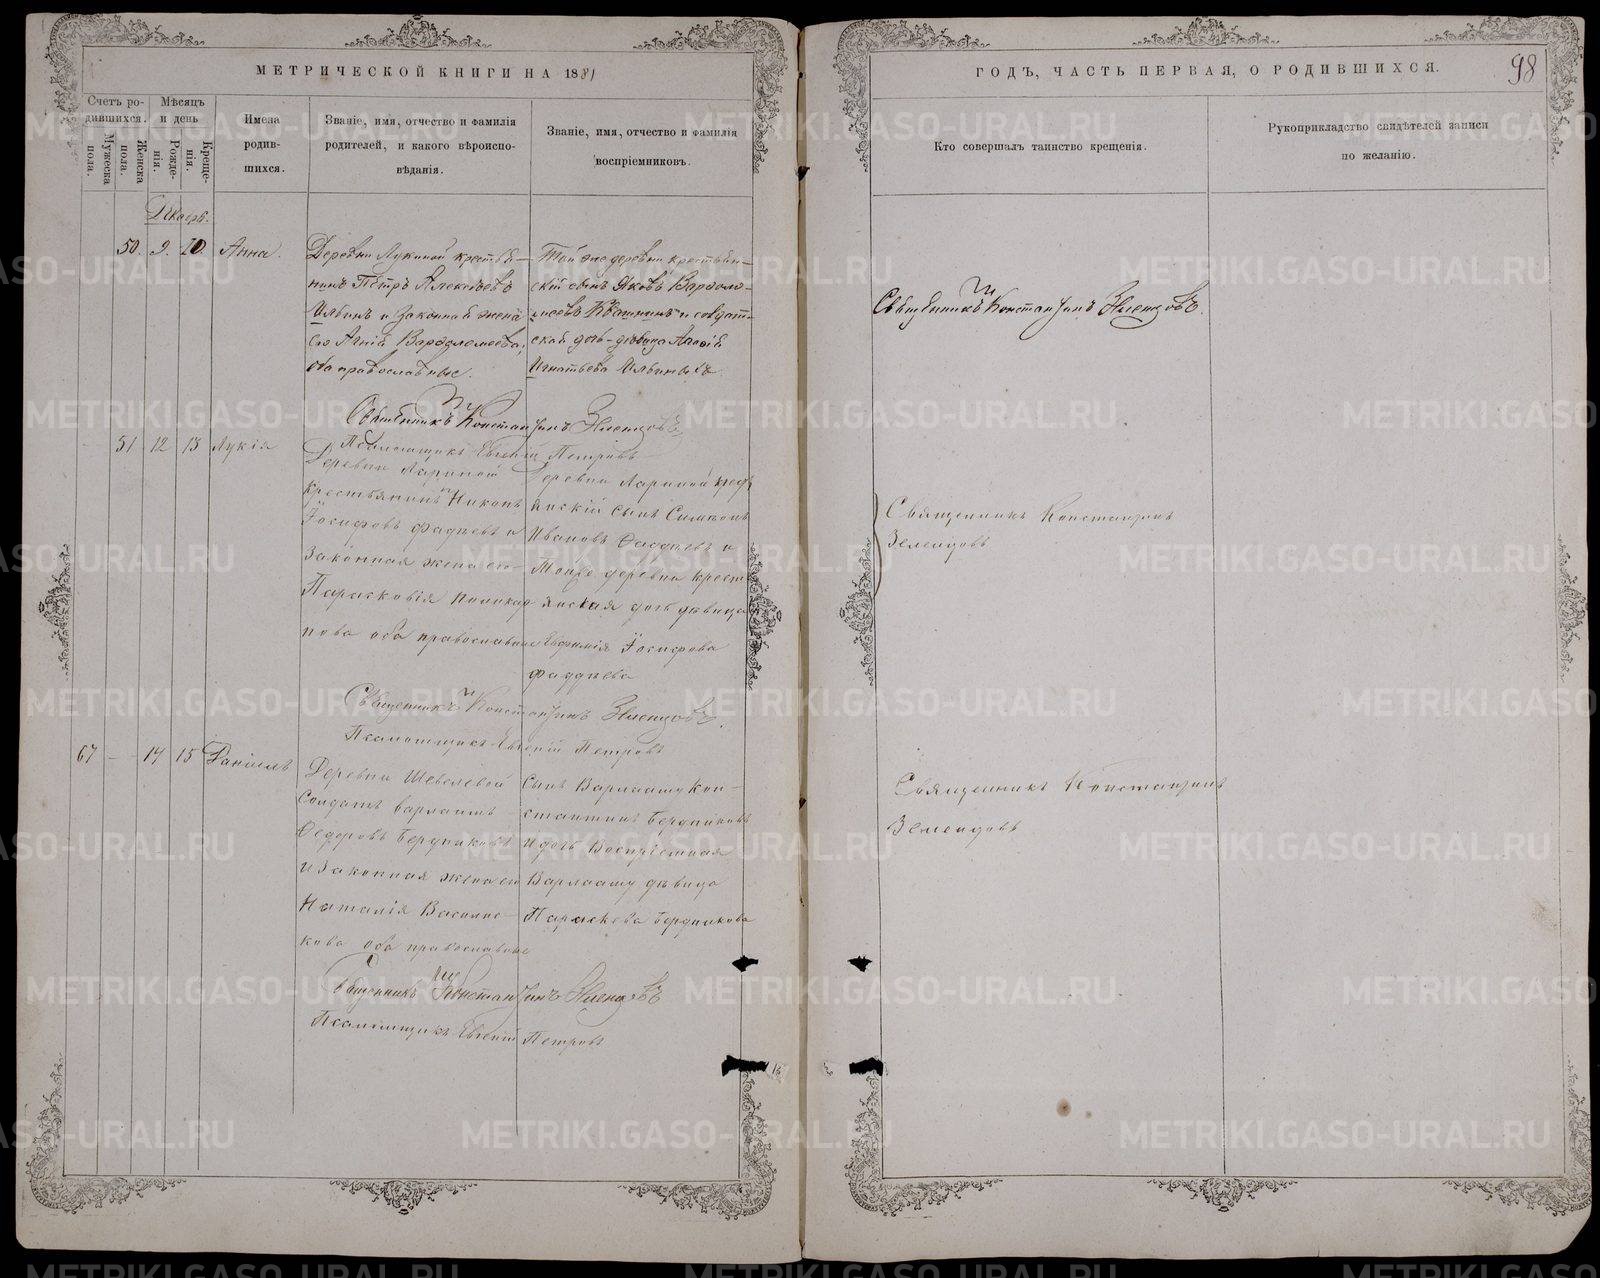 МЕТРИЧЕСКОЙ КНИГИ НА 1881
Счетъ ро-
дившихся.
Мужеска
пола.
Женска
пола.
Мѣсяцъ
и день
Рожде-
нія.
Креще-
нія.
Имена
родив-
шихся.
Званіе, имя, отчество и фамилія
родителей, и какого вѣроиспо-
вѣданія.
Званіе, имя, отчество и фамилія
воспріемниковъ.
Декабрь.
50. 9. 10. Анна.
Деревни Лукиной крестья-
нинъ Петръ Алексѣевъ
Ильинъ и законная жена
его Агнія Варѳоломеева,
оба православные.
Той же деревни крестьян-
скій сынъ Яковъ Варѳоло-
меевъ Квашнинъ и солдат-
ская дочь-дѣвица
Игнатьева Ильиныхъ.
Священникъ Константинъ Земенцовъ
Псаломщикъ Евгеній Петровъ
51 12 13 Лукія
Деревни Лариной
крестьянинъ Никонъ
Іосифовъ Фаддѣевъ и
Законная жена его
Парасковія Поликар
пова оба православные
Деревни Лариной крест
янскій сынъ Симеонъ
Ивановъ Фаддѣевъ и
Тоиже деревни крест
янская дочь дѣвица
Евфимія Іосифова
Фаддѣева
Священникъ Константинъ Земенцовъ.
Псаломщикъ Евгеній Петровъ
67 — 14 15 Даніилъ
Деревни Шевелевой
Солдатъ Варлаамъ
Ѳедоровъ Бердниковъ
и Законная жена его
Наталія Василис-
кова оба православные
Сынъ Варлааму Кон-
стантинъ Бердниковъ
и дочь Воспріемная
Варлааму дѣвица
Параскева Бердникова
Священникъ Константинъ Земенцовъ
Псаломщикъ Евгеній Петровъ
ГОДЪ, ЧАСТЬ ПЕРВАЯ, О РОДИВШИХСЯ.
98
Кто совершалъ таинство крещенія.
Рукоприкладство свидѣтелей записи
по желанію.
Священникъ Константинъ Земенцовъ.
Священникъ Константинъ
Земенцовъ
Священникъ Константинъ
Земенцовъ
METRIKI.GASO-URAL.RU